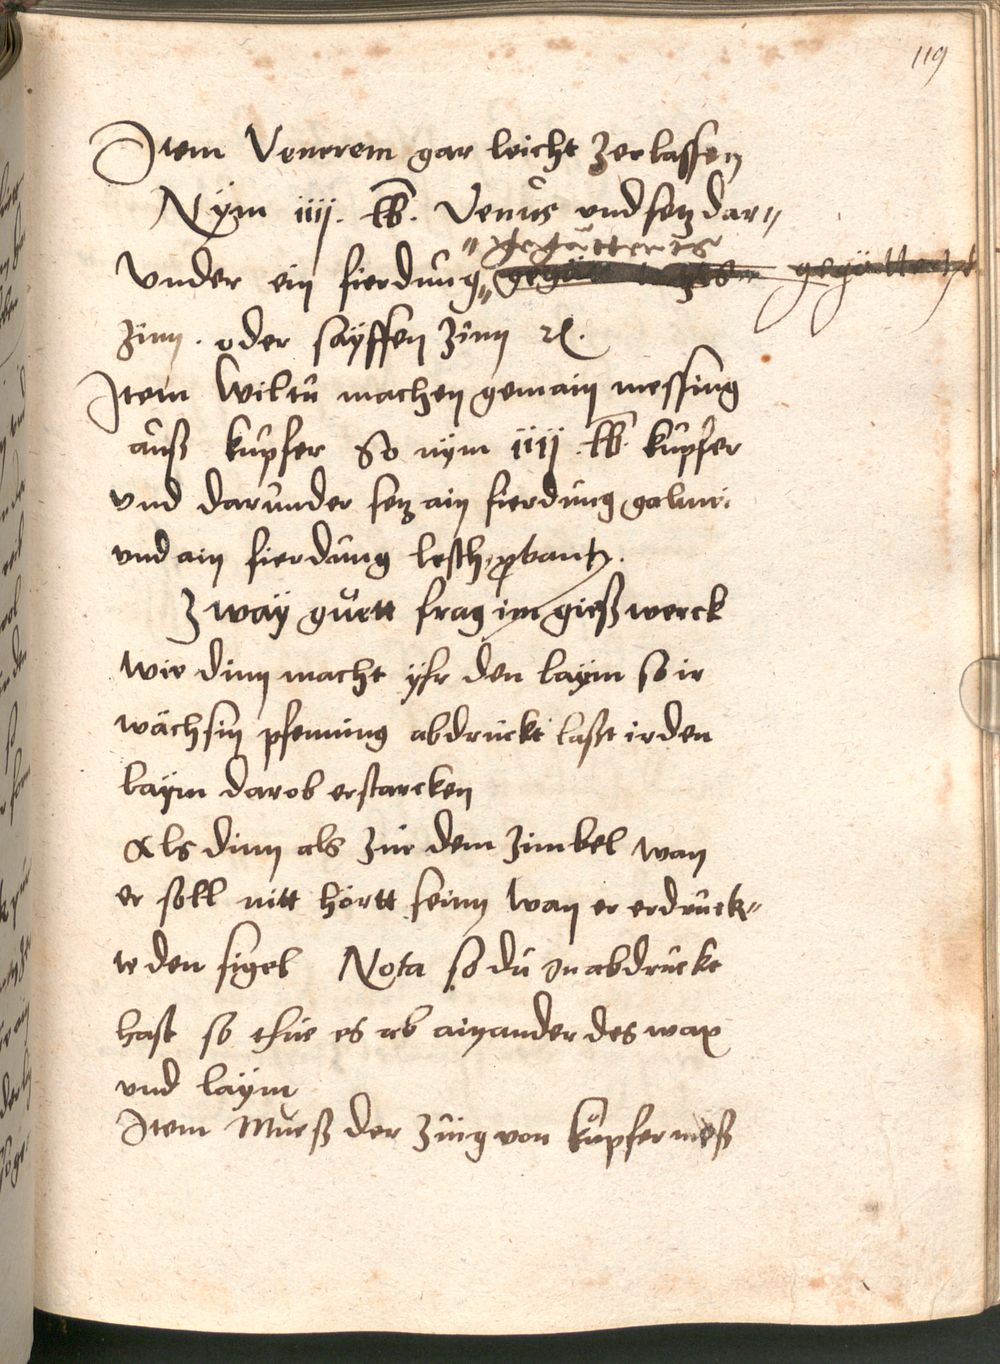 119
Item Venerem gar leicht zerlassen
Nÿm iiij. lb. Venus und setz dar„
„gegätterts
Under ein fierdung„ gegätterts
zinn . oder sayffen zinn ꝛc.
Item wiltu machen gemain messing
auß kupfer So nÿm iiij . lb. kupfer
und darunder setz ain fierdung galmi.
und ain fierdung lesch,
Zwaÿ guett frag im gießwerck
wie dinn macht yhr den laÿm so ir
wächsin pfenning abdruckt laßt ir den
laÿm darob erstarcken
Als dinn als zu dem zimbel wan
er soll nitt hörtt seinn wan er erdruck„
te den sigel Nota so du in abdruckt
hast so thue es ab ainander des wax
und laÿm
Item Mueß der zeug von kupfer meß